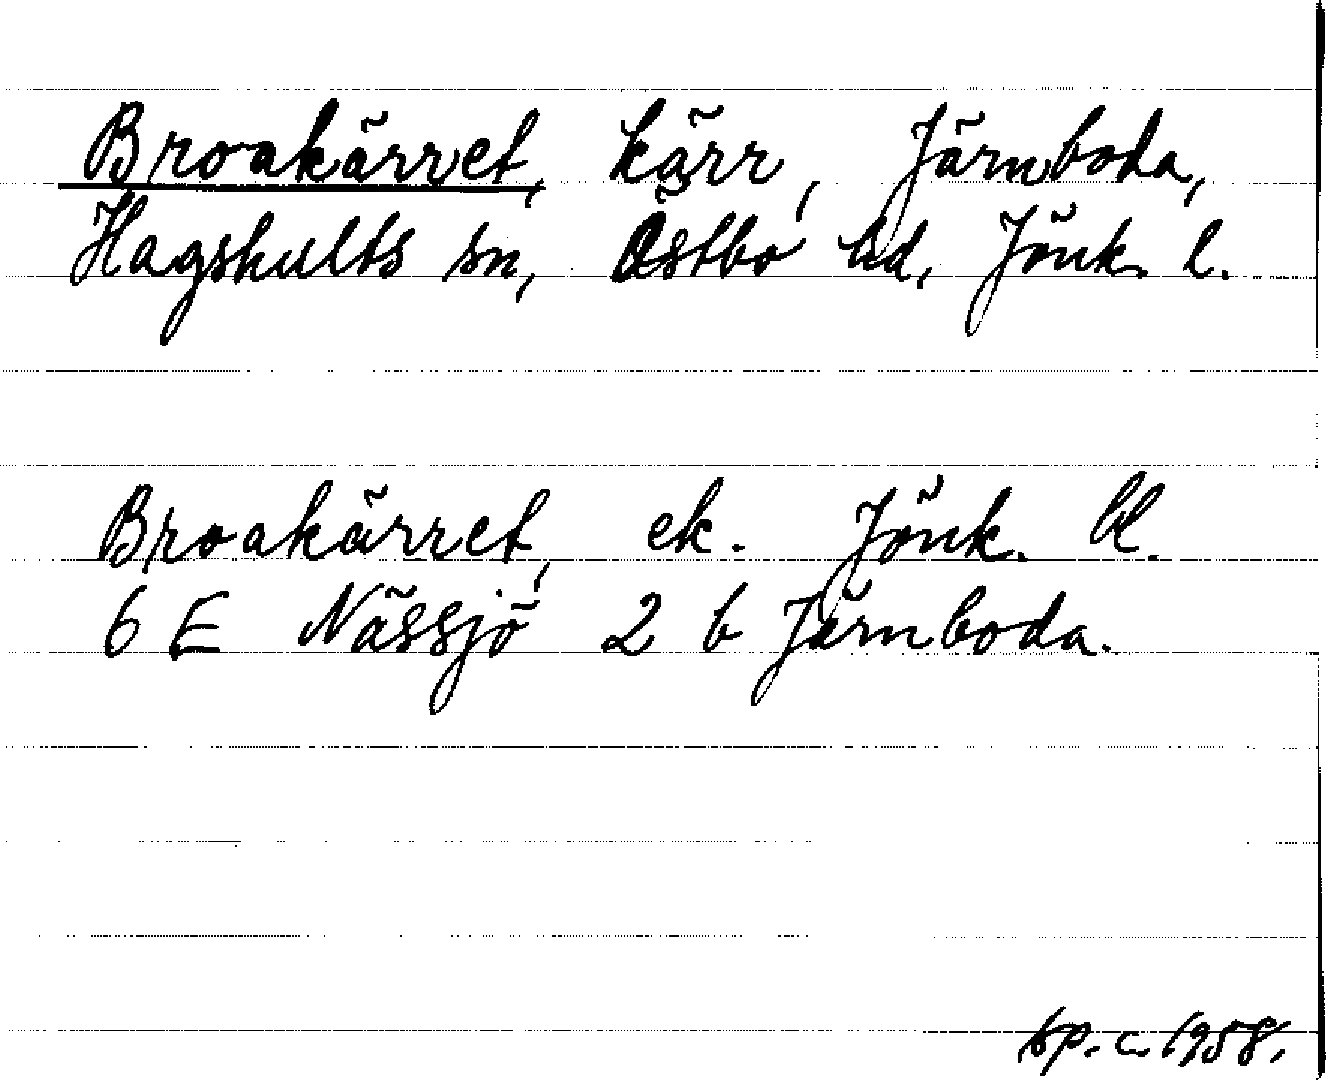 Broakärret, kärr, Järnboda,
Hagshults sn, Östbo hd, Jönk. l.
Broakärret, ek. Jönk. bl.
6 E Nässjö 2 b Järnboda.
tp. c. 1958.